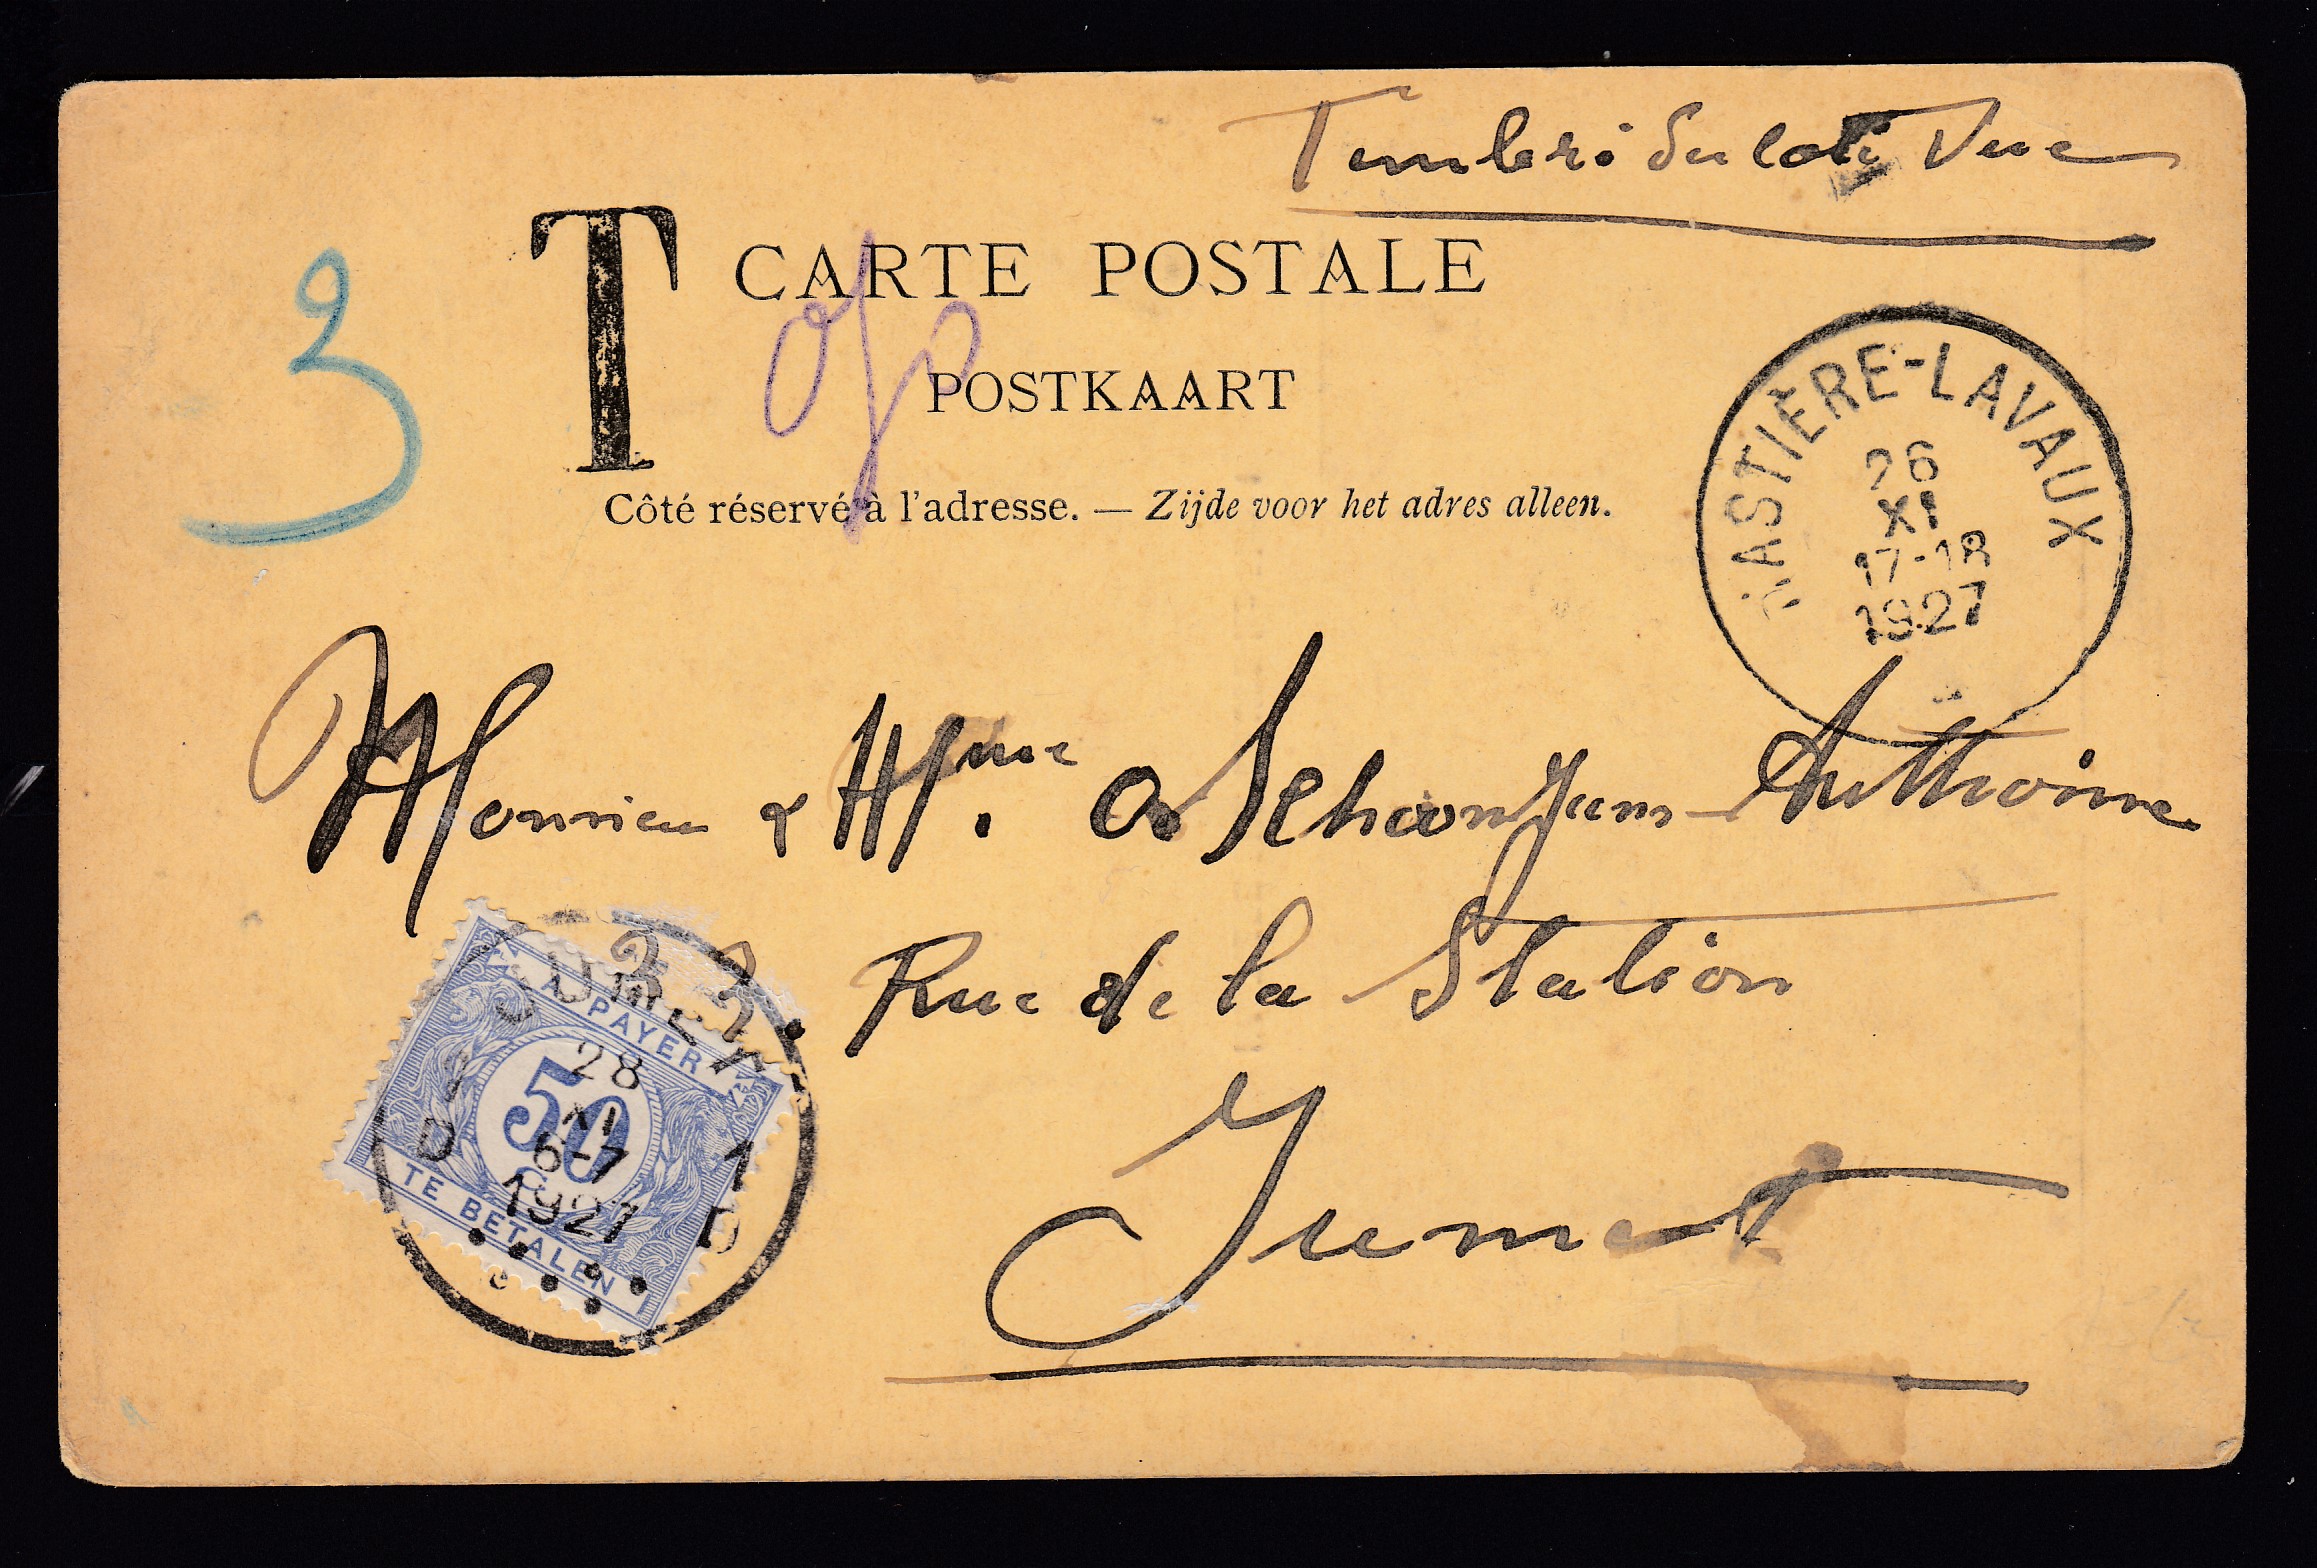 Timbré du côté Vue
T CARTE POSTALE
POSTKAART
3
Côté réservé à l'adresse. — Zijde voor het adres alleen.
HASTIÈRE-LAVAUX
26
XI
17-18
1927
Monsieur & Mme. Anthoine
Rue de la Station
Jumet
JUMET
A PAYER
50
TE BETALEN
28
XI
6-7
1927
1 D
1 D